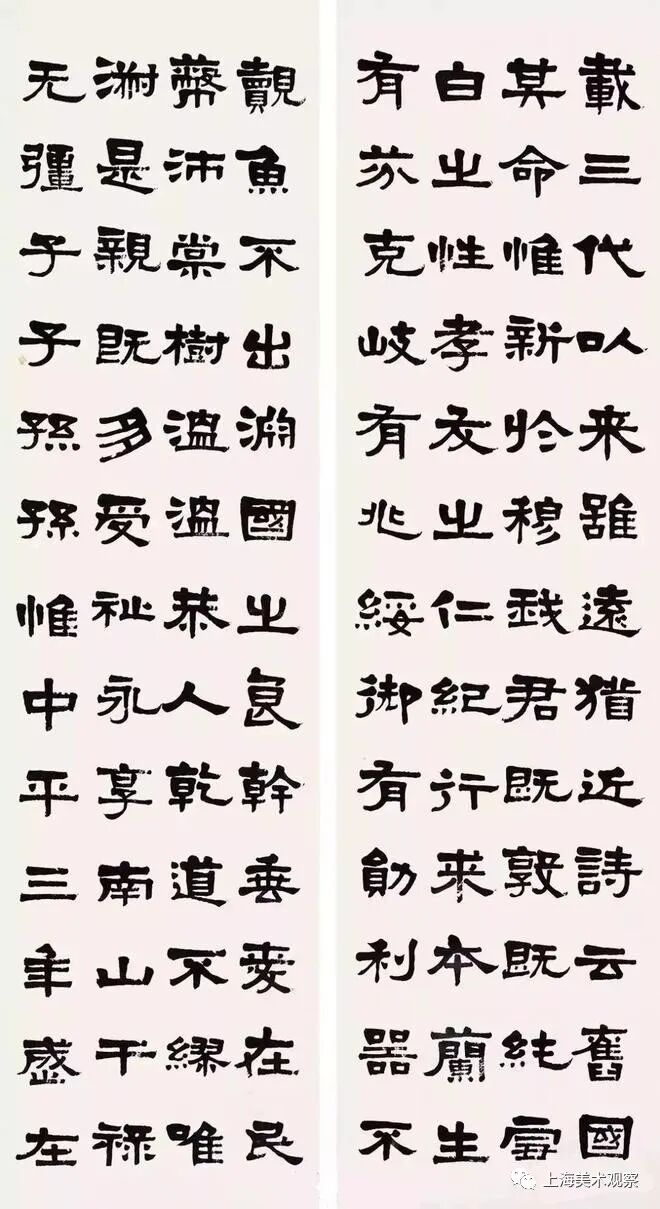 載三代以来雖遠猶近詩云舊國
其命惟新於穆我君既敦既純雪
白之性孝友之仁紀行来本蘭生
有芬克岐有兆綏御有勛利器不
覿魚不出淵國之良幹垂愛在民
蔽沛棠樹溫溫恭人乾道不繆唯
淑是親既多受祉永享南山干禄
无彊子子孫孫惟中平三年歲在
上海美术观察